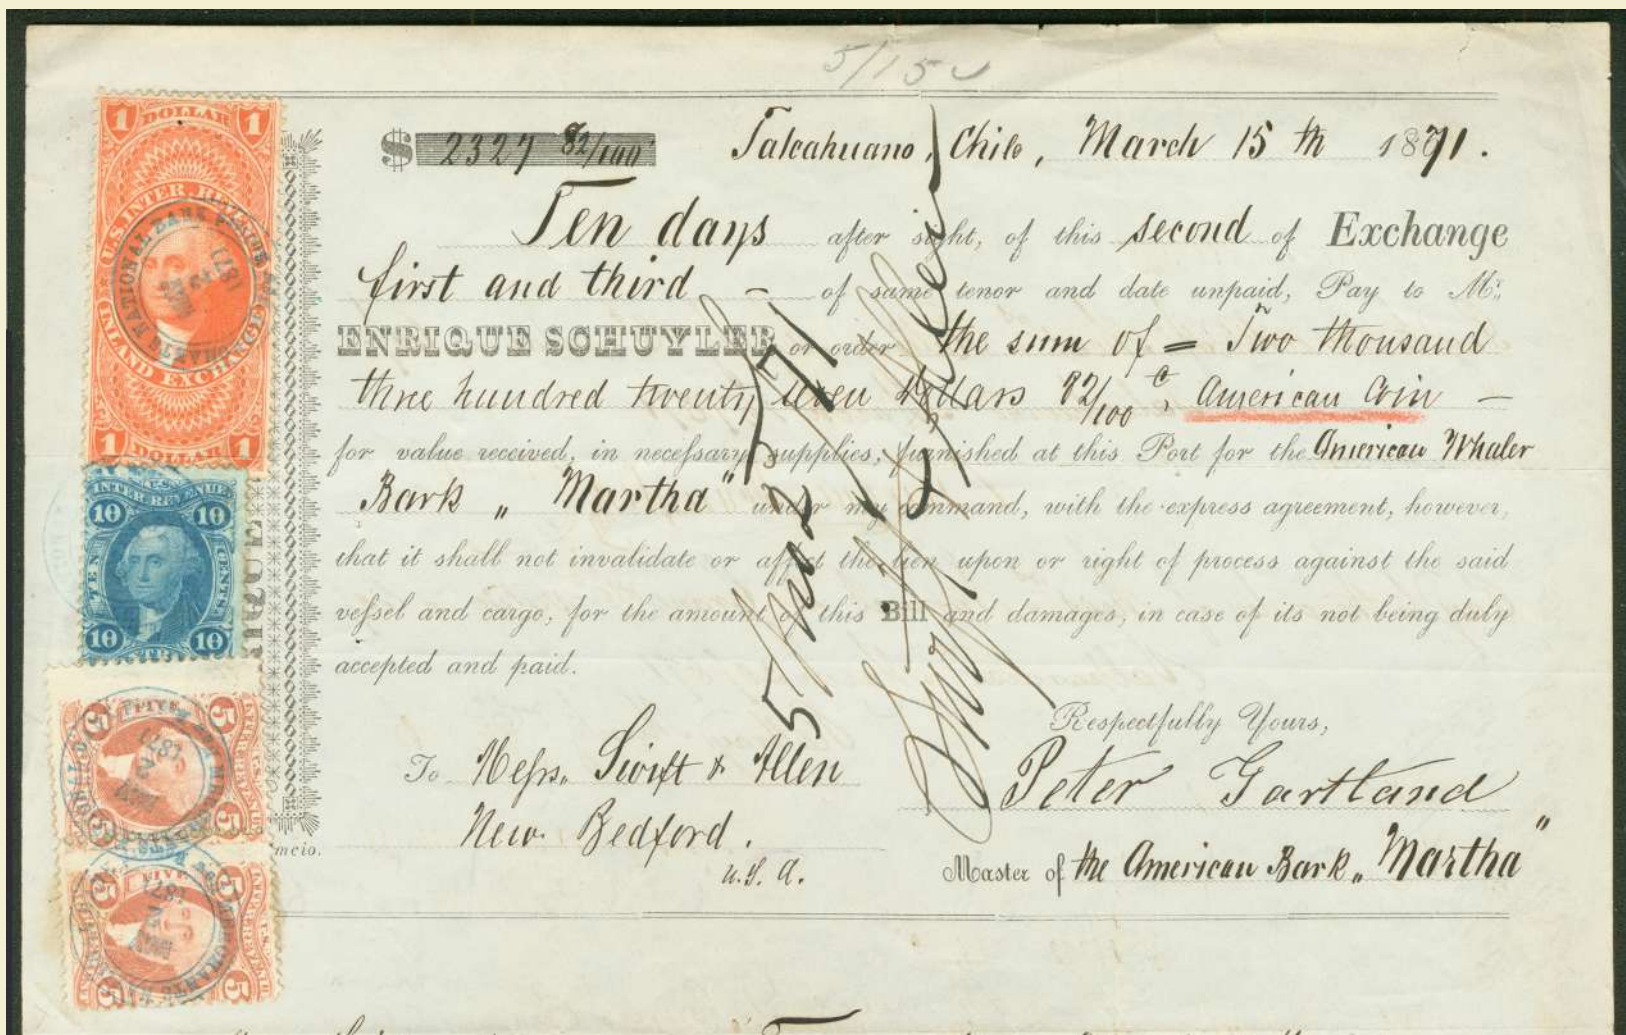 5/15
$ 2327 82/100 Talcahuano, Chile, March 15th 1871.
Ten days after sight, of this second of Exchange
first and third – of same tenor and date unpaid, Pay to Mr.
ENRIQUE SCHUYLER or order the sum of = Two thousand
three hundred twenty seven dollars 82/100 c, American Coin –
for value received, in necessary supplies, furnished at this Port for the American Whaler
Bark „ Martha" under my command, with the express agreement, however,
that it shall not invalidate or affect the lien upon or right of process against the said
vessel and cargo, for the amount of this Bill and damages, in case of its not being duly
accepted and paid.
Respectfully Yours,
To Messrs. Swift & Allen
Peter Gartland
New Bedford.
U.S.A.
Master of the American Bark „Martha"
Swift & Allen
1 DOLLAR 1
U.S. INTER. REVENUE
INLAND EXCHANGE
1 DOLLAR 1
NATIONAL BANK
1871
INTER. REVENUE
10 10
TEN CENTS
10 10
5 FIVE 5
INTER. REVENUE
1871
5 5
5 FIVE 5
INTER. REVENUE
U.S.
1871
5 5
mcio.